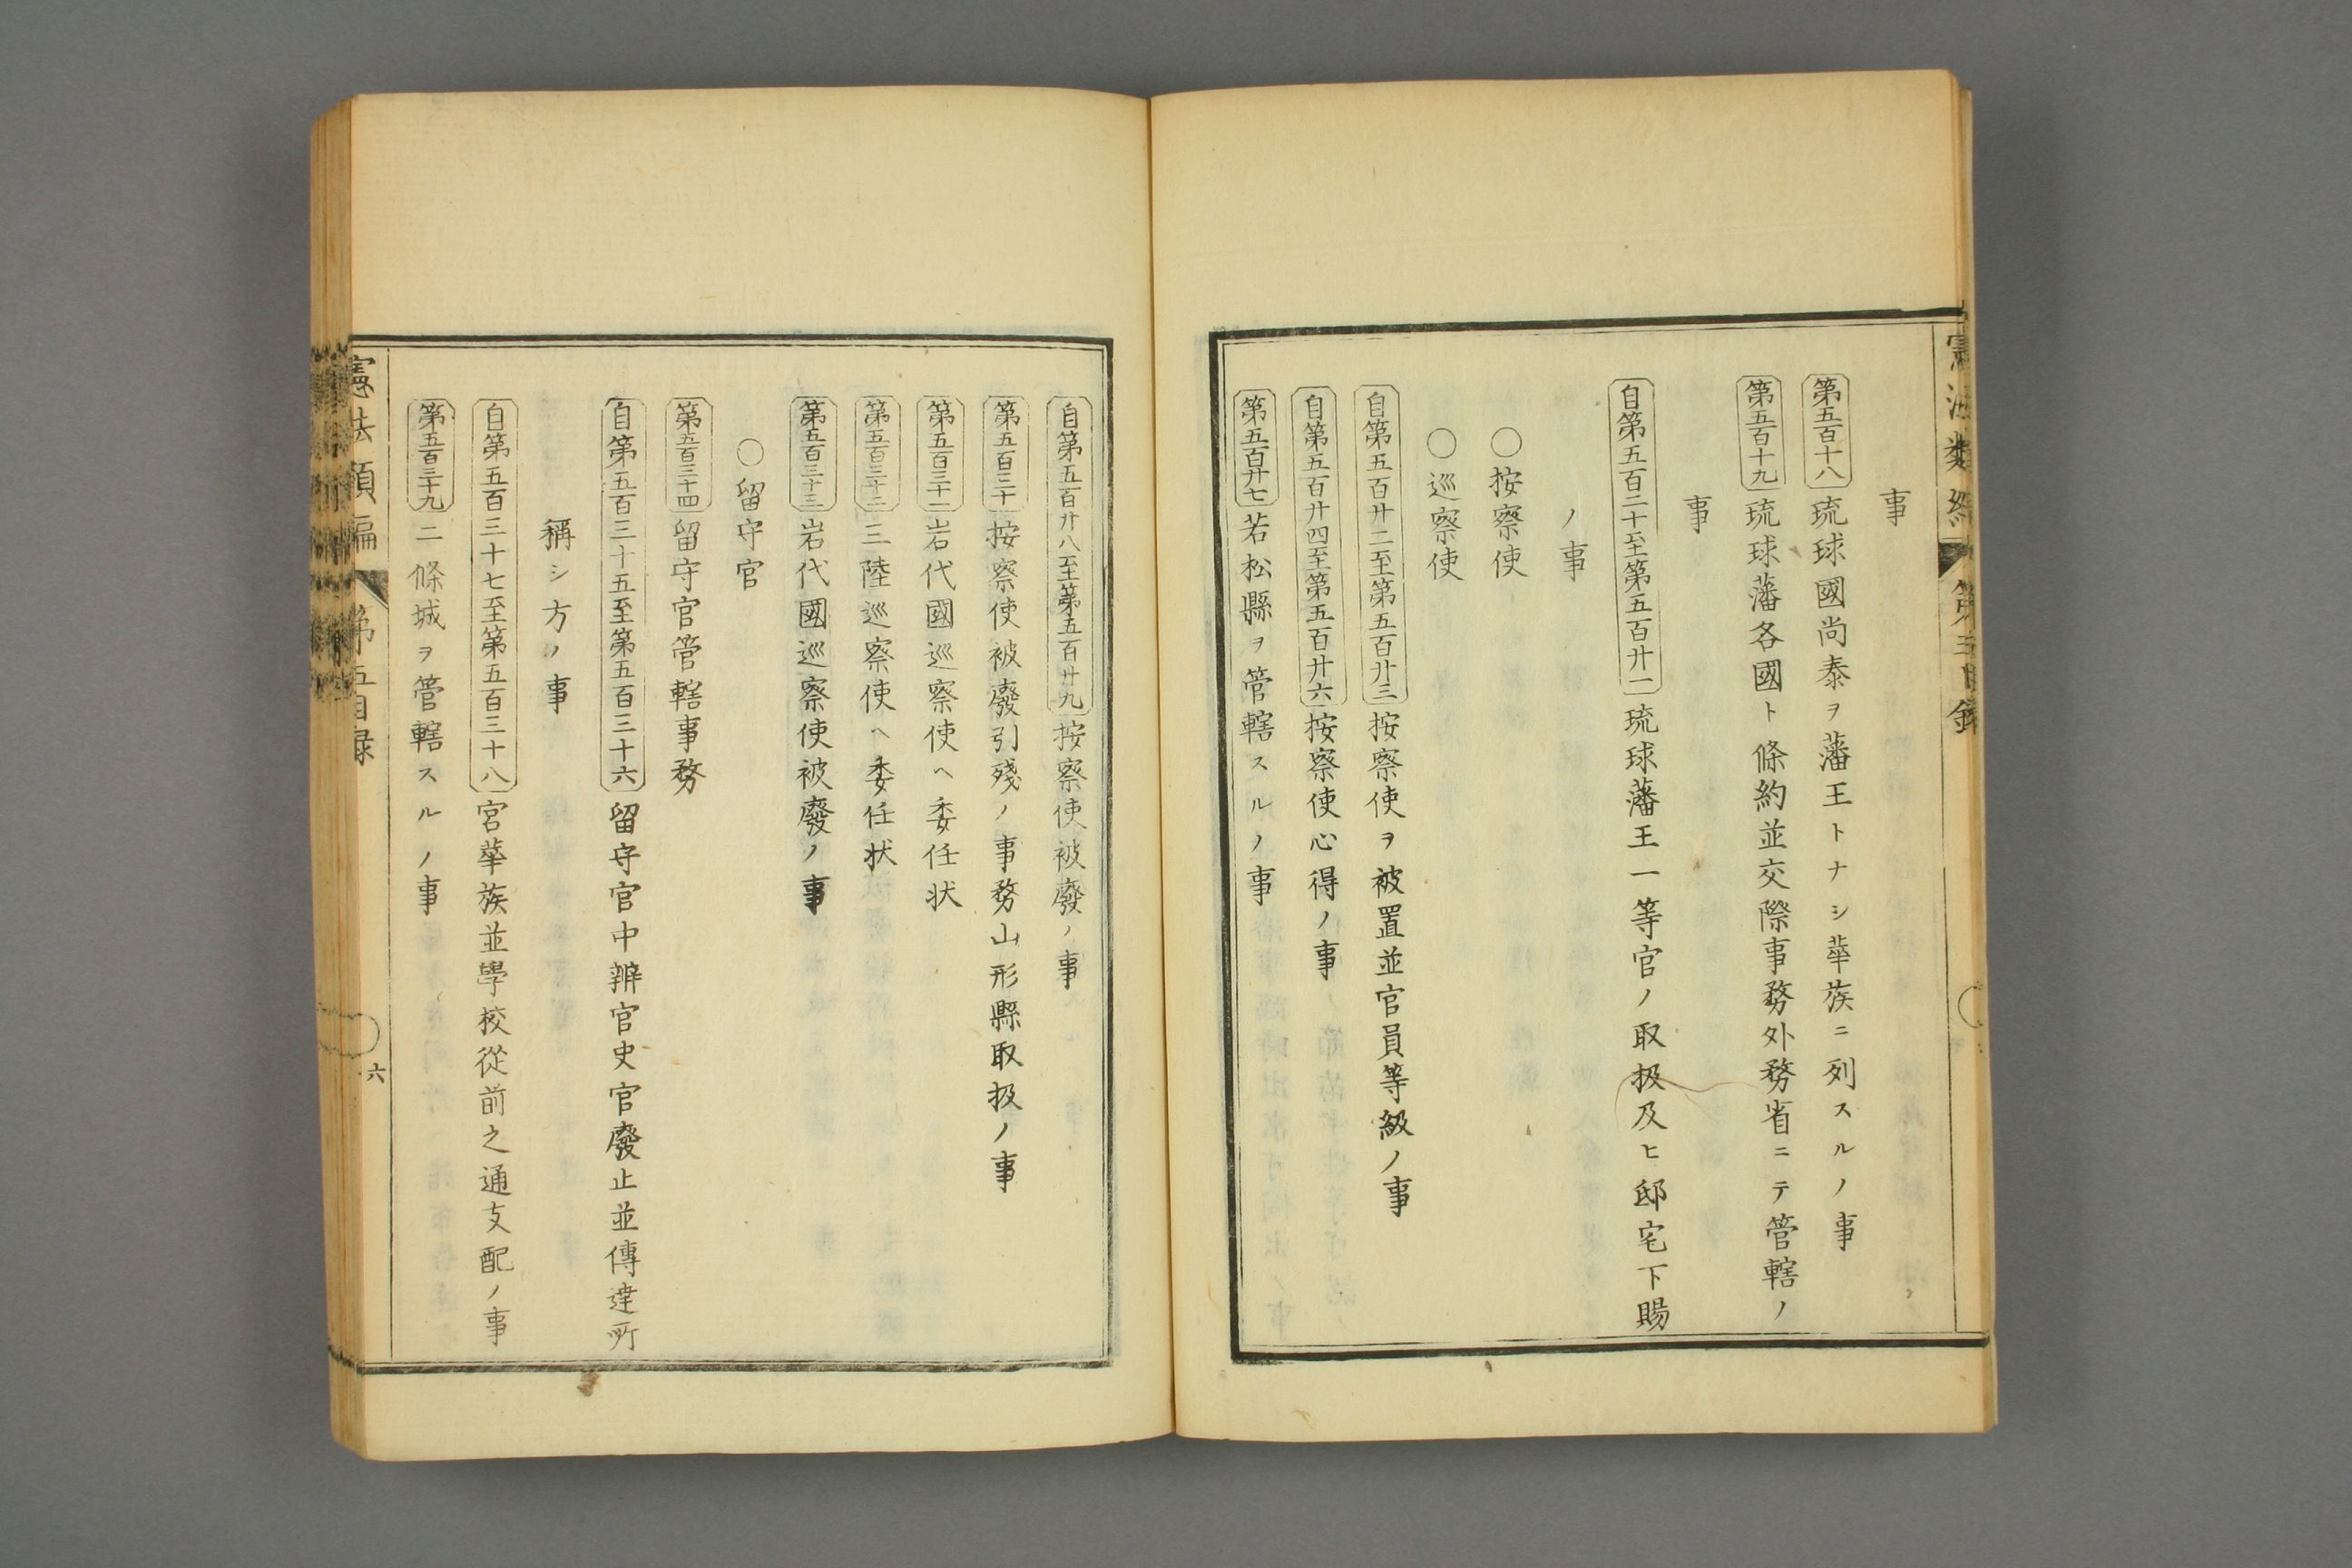 事
第五百十八 琉球國尚泰ヲ藩王トナシ華族ニ列スルノ事
第五百十九 琉球藩各國ト條約並交際事務外務省ニテ管轄ノ
事
自第五百二十至第五百廿一 琉球藩王一等官ノ取扱及ヒ邸宅下賜
ノ事
○按察使
○巡察使
自第五百廿二至第五百廿三 按察使ヲ被置並官員等級ノ事
自第五百廿四至第五百廿六 按察使心得ノ事
第五百廿七 若松縣ヲ管轄スルノ事
自第五百廿八至第五百廿九 按察使被廢ノ事
第五百三十 按察使被廢引殘ノ事務山形縣取扱ノ事
第五百三十一 岩代國巡察使ヘ委任状
第五百三十二 三陸巡察使ヘ委任状
第五百三十三 岩代國巡察使被廢ノ事
○留守官
第五百三十四 留守官管轄事務
自第五百三十五至第五百三十六 留守官中辨官史官廢止並傳達所
稱シ方ノ事
自第五百三十七至第五百三十八 宮華族並學校從前之通支配ノ事
第五百三十九 二條城ヲ管轄スルノ事
憲法類編 第五目録
六